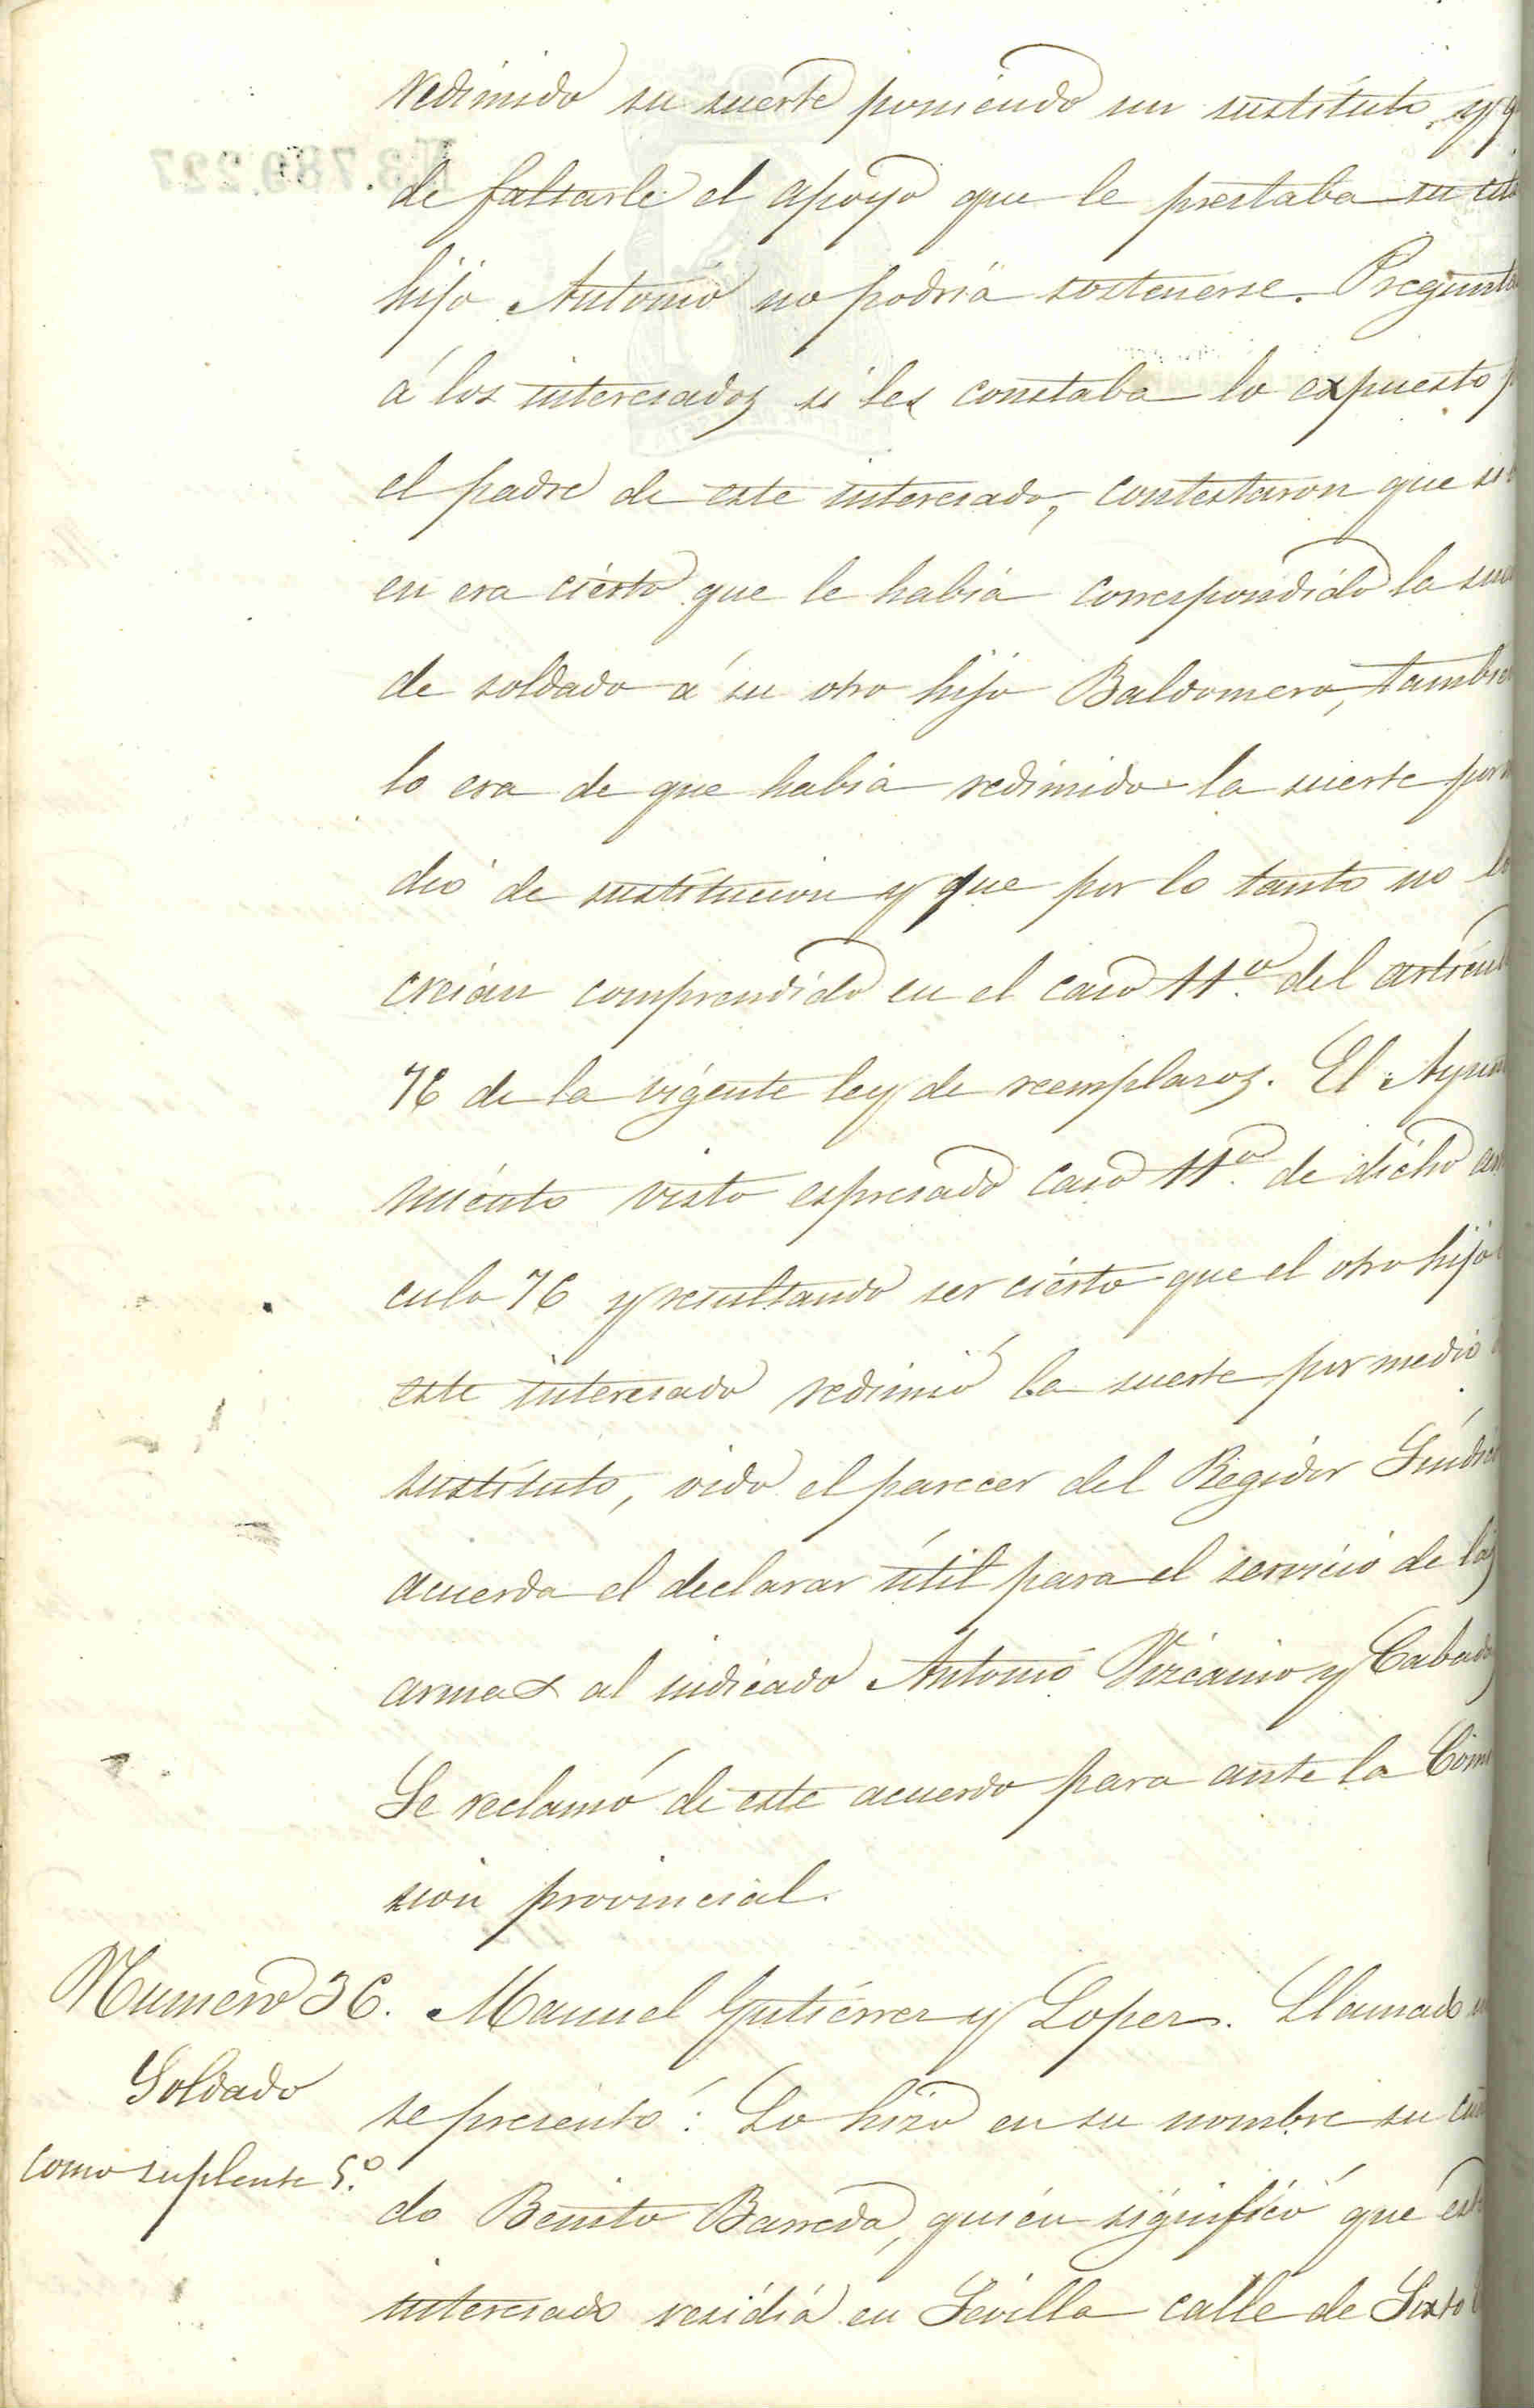 redimido su suerte poniendo un sustituto, y q
de faltarle el apoyo que le prestaba su cita
hijo Antonio no podria sostenerse. Pregunta
á los interesados si les constaba lo expuesto p
el padre de este interesado, contestaron que si
en era cierto que le habia correspondido la sue
de soldado á su otro hijo Baldomero, tambie
lo era de que habia redimido la suerte por
dio de sustitucion y que por lo tanto no lo
creian comprendido en el caso 11.º del articul
76 de la vigente ley de reemplazos. El Ayun
miento visto espresado caso 11.º de dicho arti
culo 76 y resultando ser cierto que el otro hijo
este interesado redimió la suerte por medio
sustituto, oido el parecer del Regidor Sindico
acuerda el declarar útil para el servicio de las
armas al indicado Antonio Vizcaino y
Se reclamó de este acuerdo para ante la Comi
sion provincial.
Numero 36. Manuel Gutiérrez y Lopez. Llamado
Soldado
como suplente 5.º
se presentó: Lo hizo en su nombre su cuña
do Benito Barreda, quien significó que este
interesado residiá en Sevilla calle de Sixto